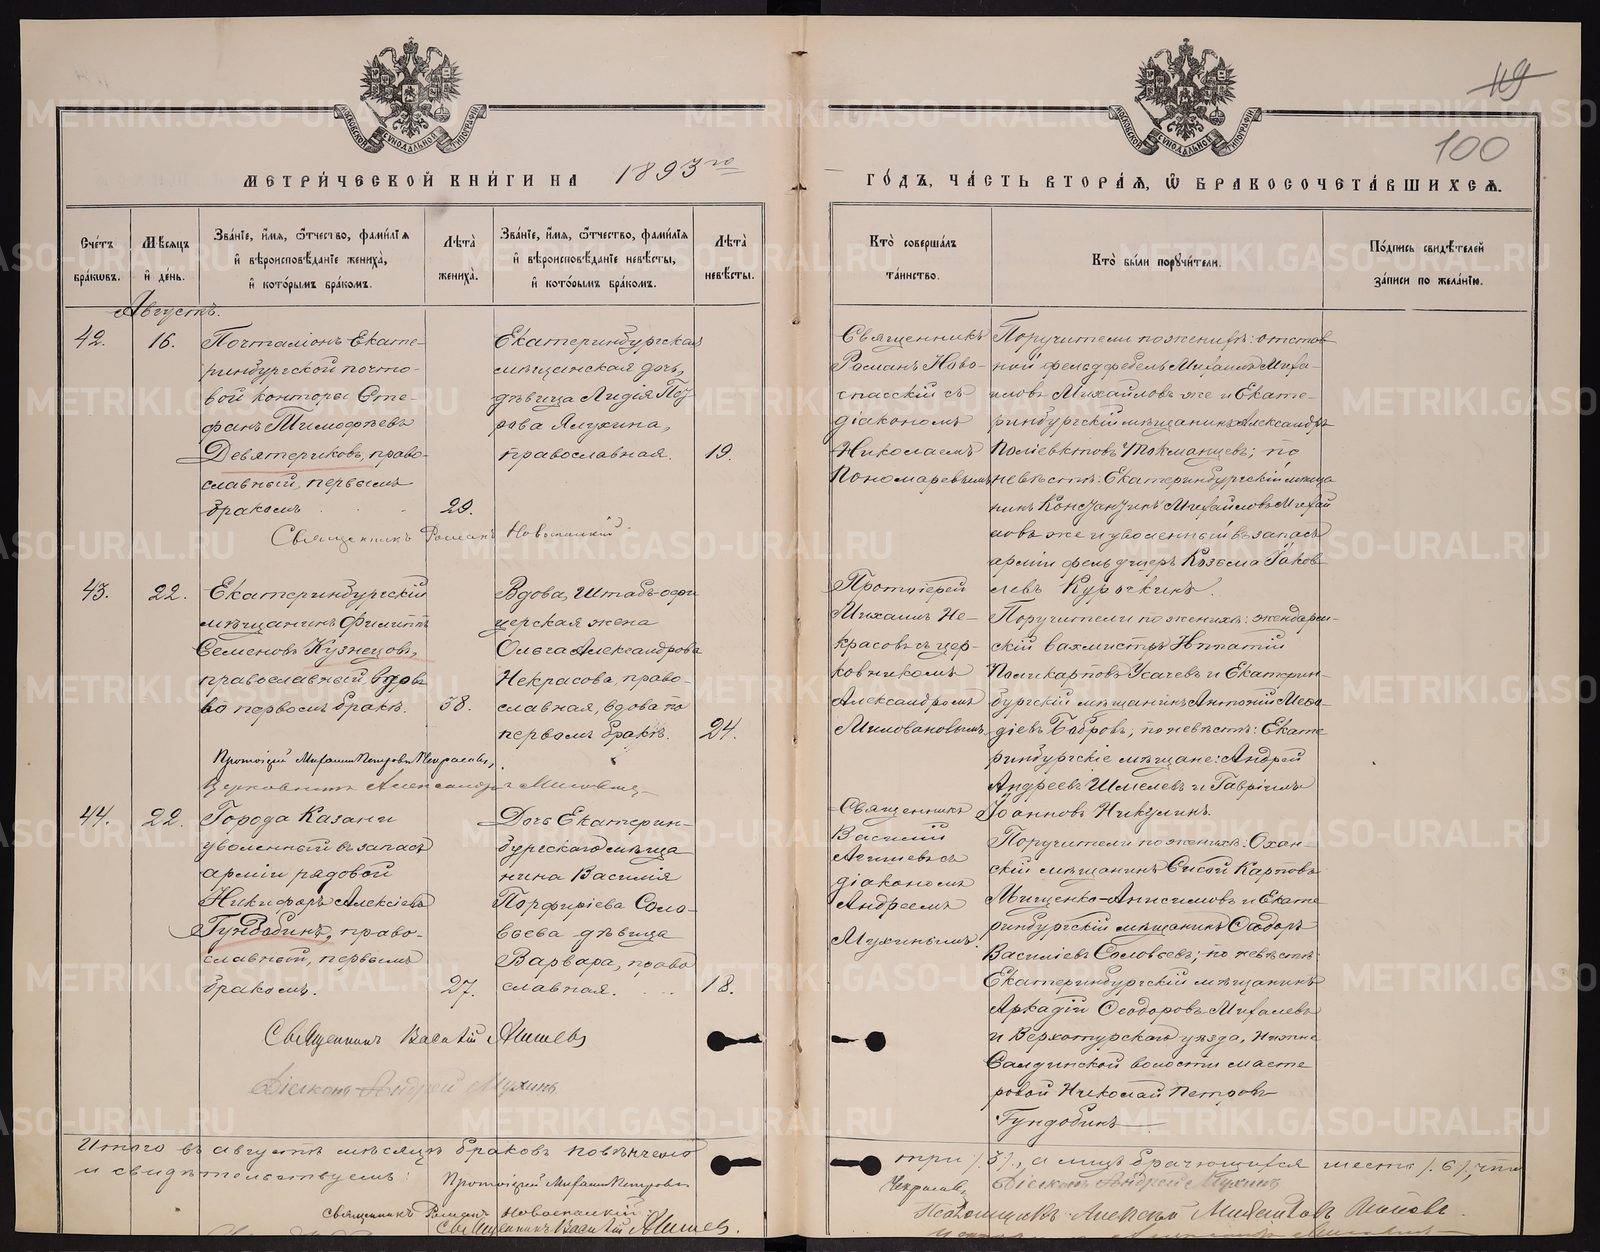 119
100
МЕТРИ́ЧЕСКОЙ КНИ́ГИ НА 1893го
ГО́ДЪ, ЧА́СТЬ ВТОРА́Я, Ѽ БРАКОСОЧЕТА́ВШИХСЯ.
МОСКОВСКОЙ СУНОДАЛЬНОЙ ТИПОГРАФІИ
МОСКОВСКОЙ СУНОДАЛЬНОЙ ТИПОГРАФІИ
Сче́тъ бра́ковъ.
Мѣ́сяцъ и҆ де́нь.
Зва́нїе, и҆́мя, ѻ҆́тчество, фами́лїя и҆ вѣроисповѣ́данїе жениха̀, и҆ кото́рымъ бра́комъ.
Лѣ́та жениха̀.
Зва́нїе, и҆́мя, ѻ҆́тчество, фами́лїя и҆ вѣроисповѣ́данїе невѣ́сты, и҆ кото́рымъ бра́комъ.
Лѣ́та невѣ́сты.
Кто̀ соверша́лъ та́инство.
Кто̀ бы́ли порꙋчи́тели.
По́дпись свидѣ́телей за́писи по жела́нїю.
Августъ.
42.
16.
Почталіонъ Екате-
ринбургской почто-
вой конторы Сте-
фанъ Тимофѣевъ
Девятериковъ, право-
славный, первымъ
бракомъ
29.
Екатеринбургская
мѣщанская дочь,
дѣвица Лидія
рова Ялухина,
православная.
19.
Священникъ
Романъ Ново-
спасскій съ
діакономъ
Николаемъ
Пономаревымъ
Поручители по женихѣ: отстав
ной фельдфебель Михаилъ Миха-
иловъ Михайловъ же и Екате-
ринбургскій мѣщанинъ Александръ
Поліевктовъ Токманцевъ; по
невѣстѣ: Екатеринбургскій мѣща
нинъ Константинъ Михайловъ Михай
ловъ же и уволенный въ запасъ
арміи фельдшеръ Козьма Яков
левъ Курочкинъ.
Священникъ Романъ Новоспасскій
43.
22.
Екатеринбургскій
мѣщанинъ Филиппъ
Семеновъ Кузнецовъ,
православный, вдовъ
по первомъ бракѣ.
38.
Вдова, Штабъ-офи
церская жена
Ольга Александрова
Некрасова, право-
славная, вдова по
первомъ бракѣ.
24.
Протоіерей
Михаилъ Не-
красовъ съ цер-
ковникомъ
Александромъ
Миловановымъ
Поручители по женихѣ: жандарм-
скій вахмистръ Ипатій
Поликарповъ Усачевъ и Екатерин-
бургскій мѣщанинъ Антоній Мефо
діевъ Бобровъ, по невѣстѣ: Екате
ринбургскіе мѣщане: Андрей
Андреевъ Шмелевъ и Гавріилъ
Іоанновъ Никулинъ.
Протоіерей Михаилъ Петровъ Некрасовъ,
Церковникъ Александръ
44.
22.
Города Казани
уволенный въ запасъ
арміи рядовой
Никифоръ Алексіевъ
Гундобинъ, право-
славный, первымъ
бракомъ.
27.
Дочь Екатерин-
бургскаго мѣща
нина Василія
Порфиріева Соло-
вьева дѣвица
Варвара, право
славная.
18.
Священникъ
Василій
Агишевъ съ
діакономъ
Андреемъ
Мухинымъ.
Поручители по женихѣ: Охан-
скій мѣщанинъ Сысой Карповъ
Мищенко-Анисимовъ и Екате
ринбургскій мѣщанинъ Ѳедоръ
Василіевъ Соловьевъ; по невѣстѣ:
Екатеринбургскій мѣщанинъ
Аркадій Ѳеодоровъ Михалевъ
и Верхотурскаго уѣзда, Нижне
Салдинской волости масте
ровой Николай Петровъ
Гундобинъ
Священникъ Василій Агишевъ
Діаконъ Андрей Мухинъ
Итого въ августѣ мѣсяцѣ браковъ повѣнчано три /3/, а лицъ брачующихся шесть /6/, что
и свидѣтельствуемъ: Протоіерей Михаилъ Петровъ Некрасовъ, Діаконъ Андрей Мухинъ
Священникъ Романъ Новоспасскій
Священникъ Василій Агишев.
Псаломщикъ Алексѣй Поповъ.
METRIKI.GASO-URAL.RU